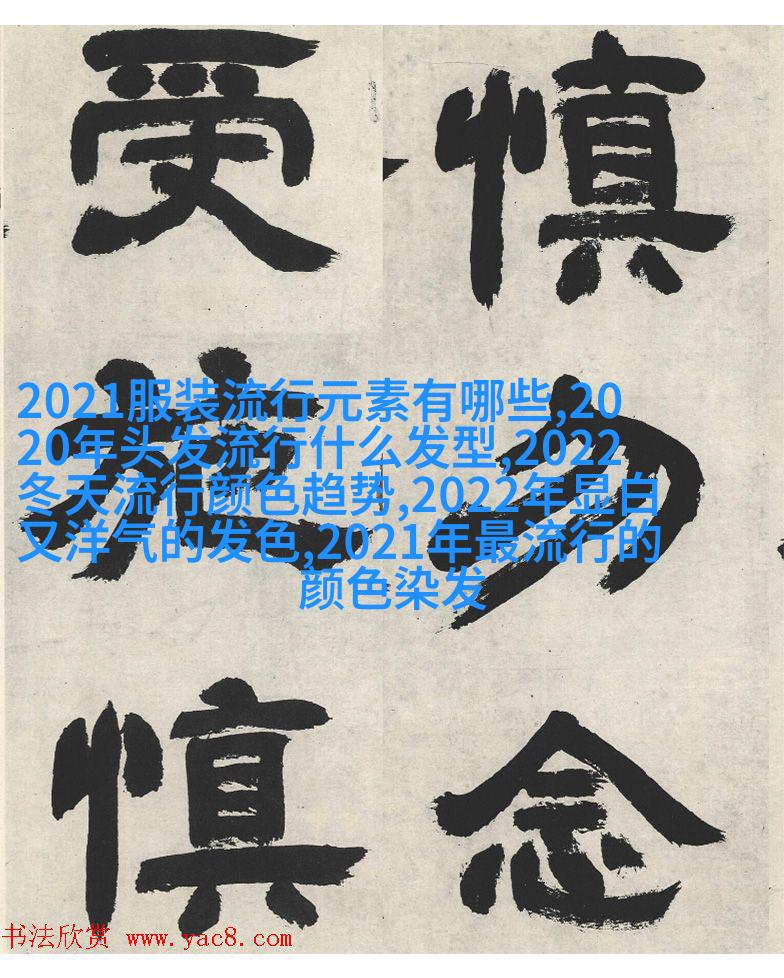 慎勿念
受施慎
2021服装流行元素有哪些,20
20年头发流行什么发型,2022
冬天流行颜色趋势,2022年显白
又洋气的发色,2021年最流行的
颜色染发
书法欣赏 www.yac8.com